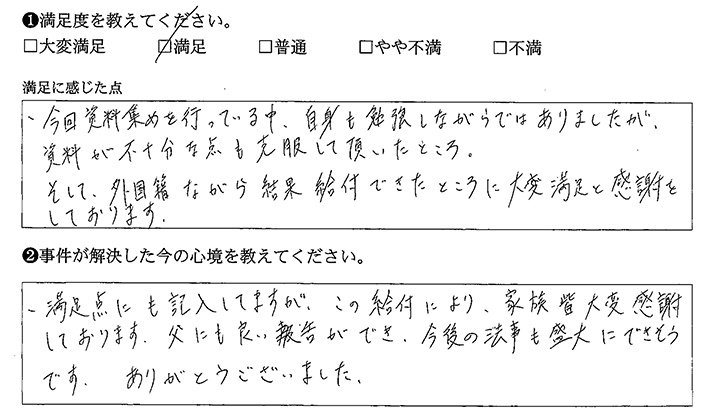 ❶満足度を教えてください。
□大変満足 ☑満足 □普通 □やや不満 □不満
満足に感じた点
、今回資料集めを行っている中、自身も勉強しながらではありましたが、
資料が不十分な点も克服して頂いたところ。
そして、外国籍ながら結果給付できたところに大変満足と感謝を
しております。
❷事件が解決した今の心境を教えてください。
、満足点にも記入してますが、この給付により、家族皆大変感謝
しております。父にも良い報告ができ、今後の法事も盛大にできそう
です。 ありがとうございました。